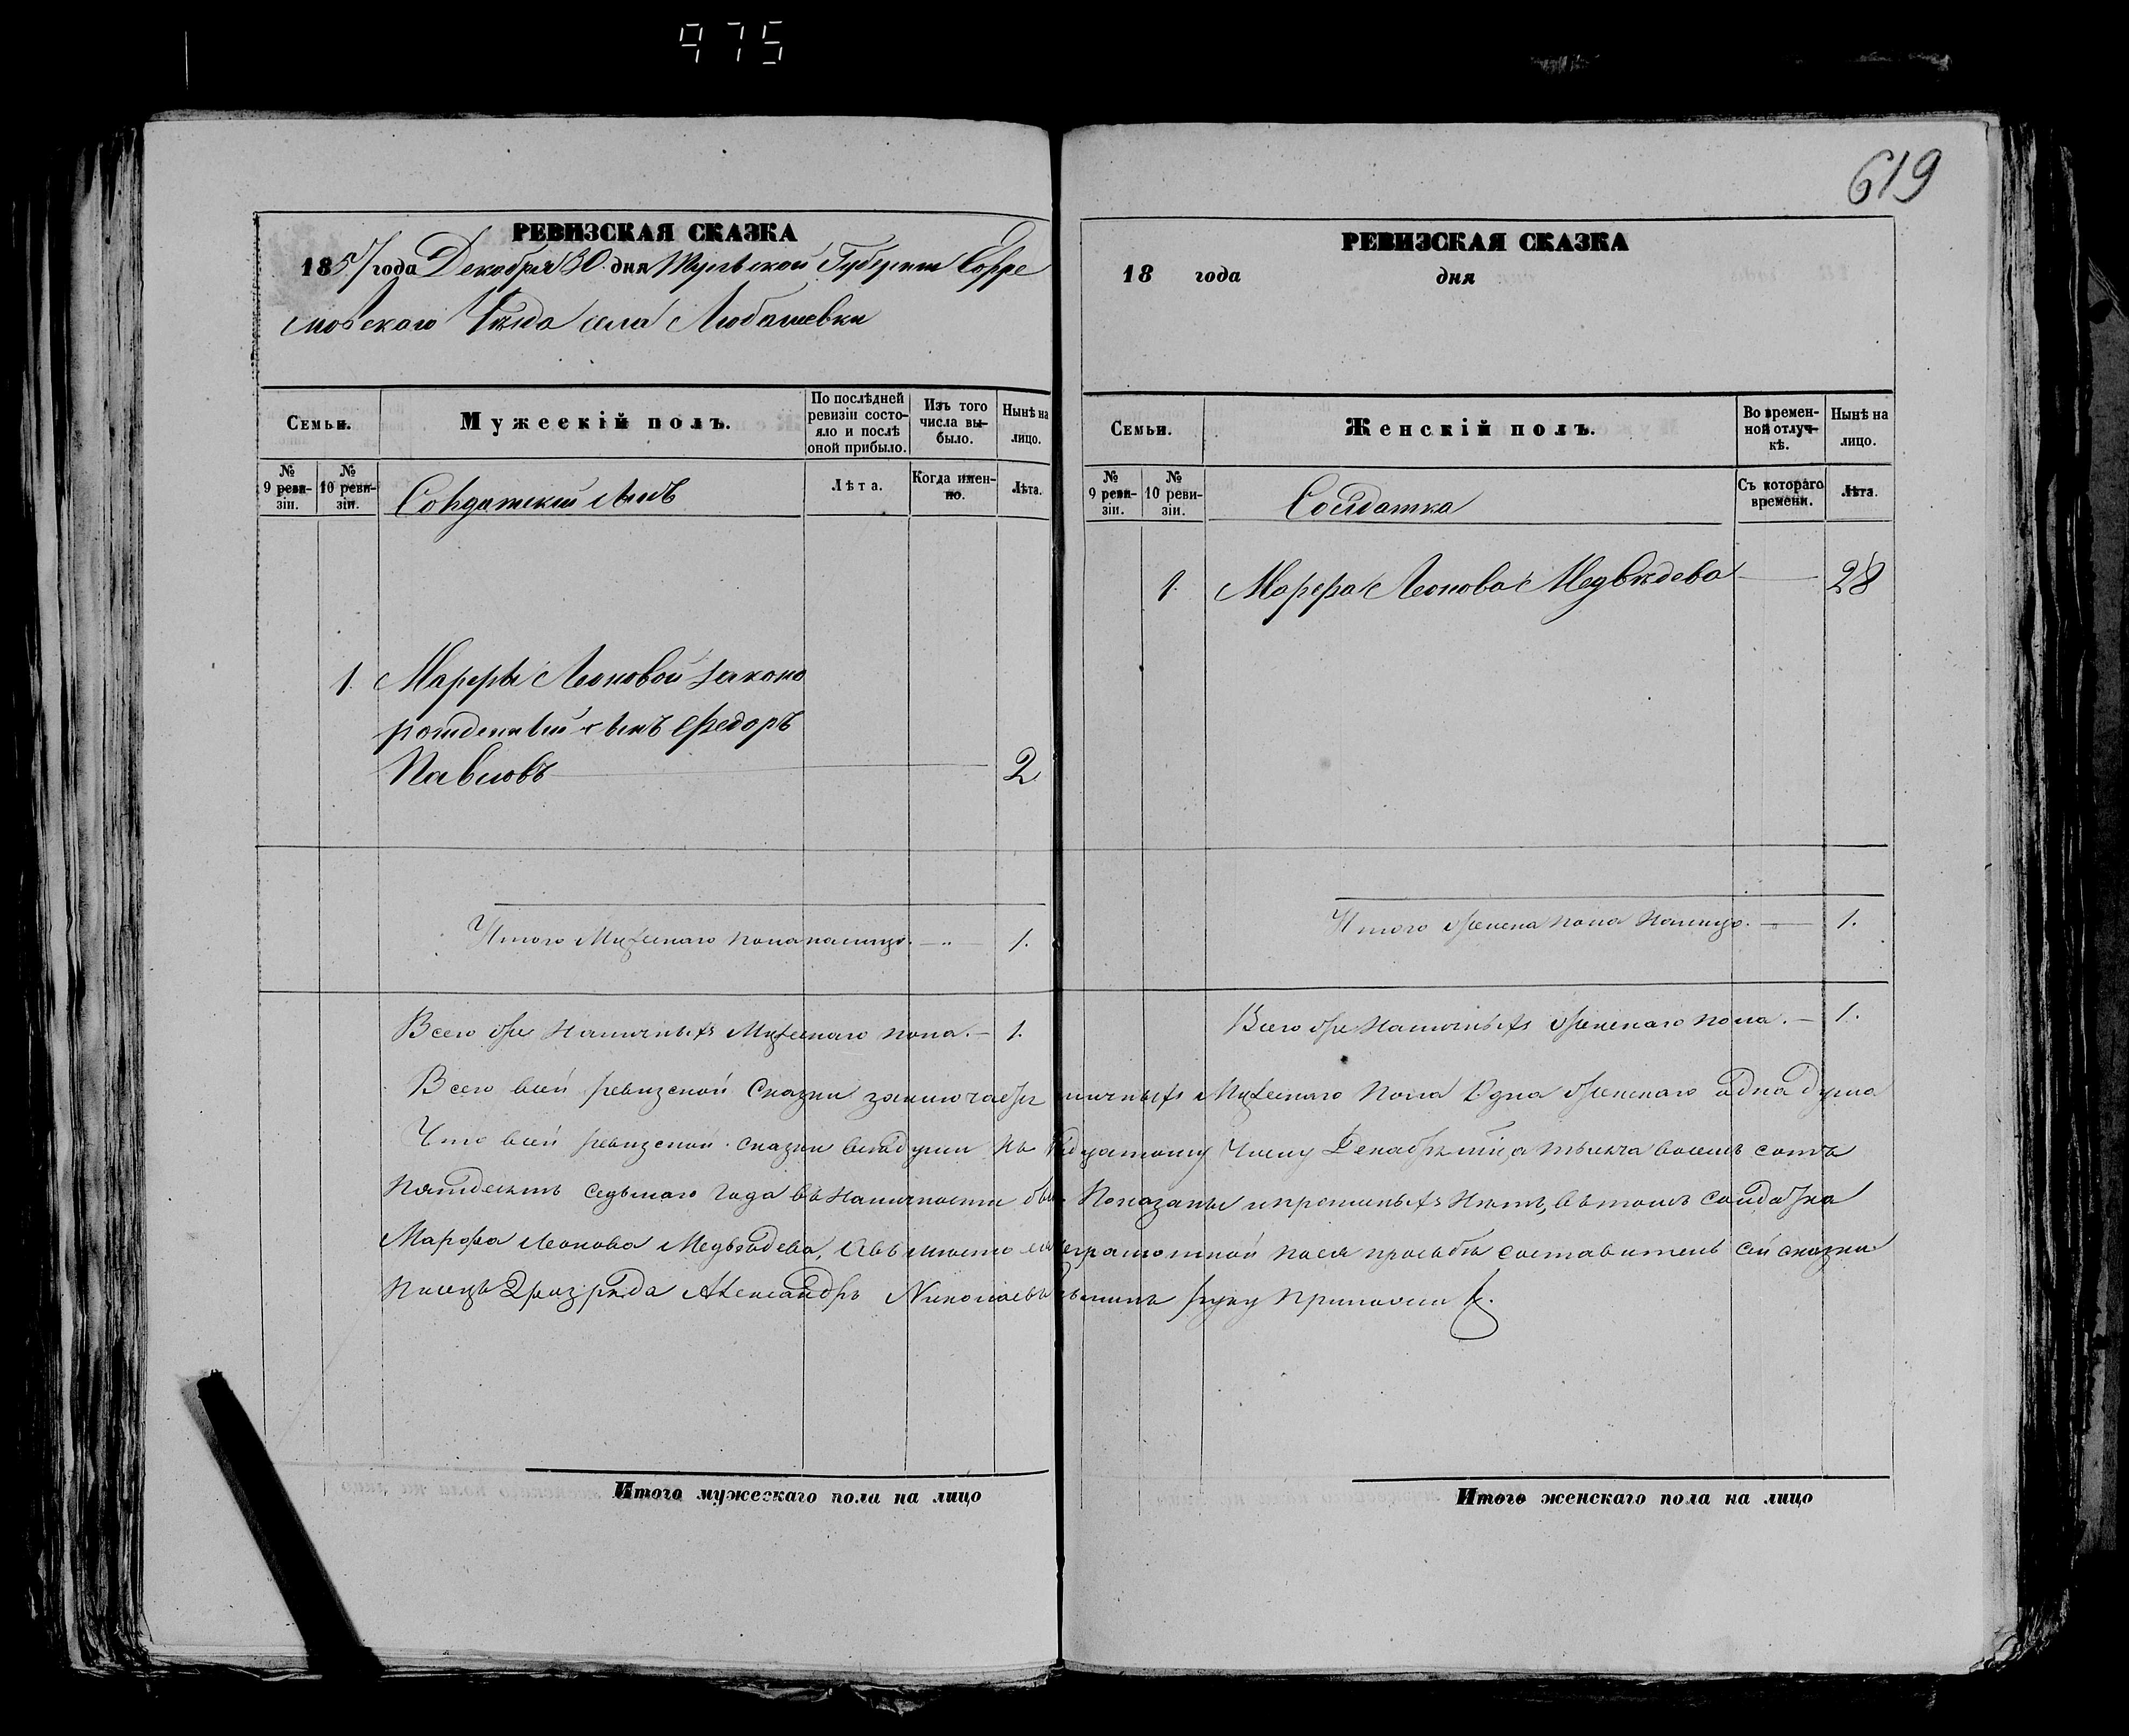 975
619
РЕВИЗСКАЯ СКАЗКА
1857 года Декабря 30 дня Тульской Губернии Ефре
мовскаго Уѣзда села Любашевки
Семьи.
Мужескій полъ.
По послѣдней ревизіи состояло и послѣ оной прибыло.
Изъ того числа выбыло.
Нынѣ на лицо.
№ 9 ревизіи.
№ 10 ревизіи.
Солдатскій сынъ
Лѣта.
Когда именно.
Лѣта.
1. Марфы Леоновой законо
рожденный сынъ Федоръ
Павловъ 2
Итого Мужескаго пола налицо. 1.
Всего же Наличныхъ Мужескаго пола. 1.
РЕВИЗСКАЯ СКАЗКА
18 года дня
Семьи.
Женскій полъ.
Во временной отлучкѣ.
Нынѣ на лицо.
№ 9 ревизіи.
№ 10 ревизіи.
Солдатка
Съ котораго времени.
Лѣта.
1. Марфа Леонова Медвѣдева 28
Итого женска пола Налицо. 1.
Всего же Наличныхъ женскаго пола. 1.
Всего всей ревизской Сказки наличныхъ Мужескаго Пола Одна женскаго одна душа
Что всей ревизской сказки Числу Декабря тысяча восемь сотъ
Пятдесятъ седьмаго Года въ Наличности Показаны и прописныхъ Нѣтъ, въ томъ солдатка
Марфа Леонова Медвѣдева, А вместо неграмотной по ея просьбѣ составитель сей сказки
Писецъ 2 разряда Александръ Николаевъ руку Приложилъ.
Итого мужескаго пола на лицо
Итого женскаго пола на лицо